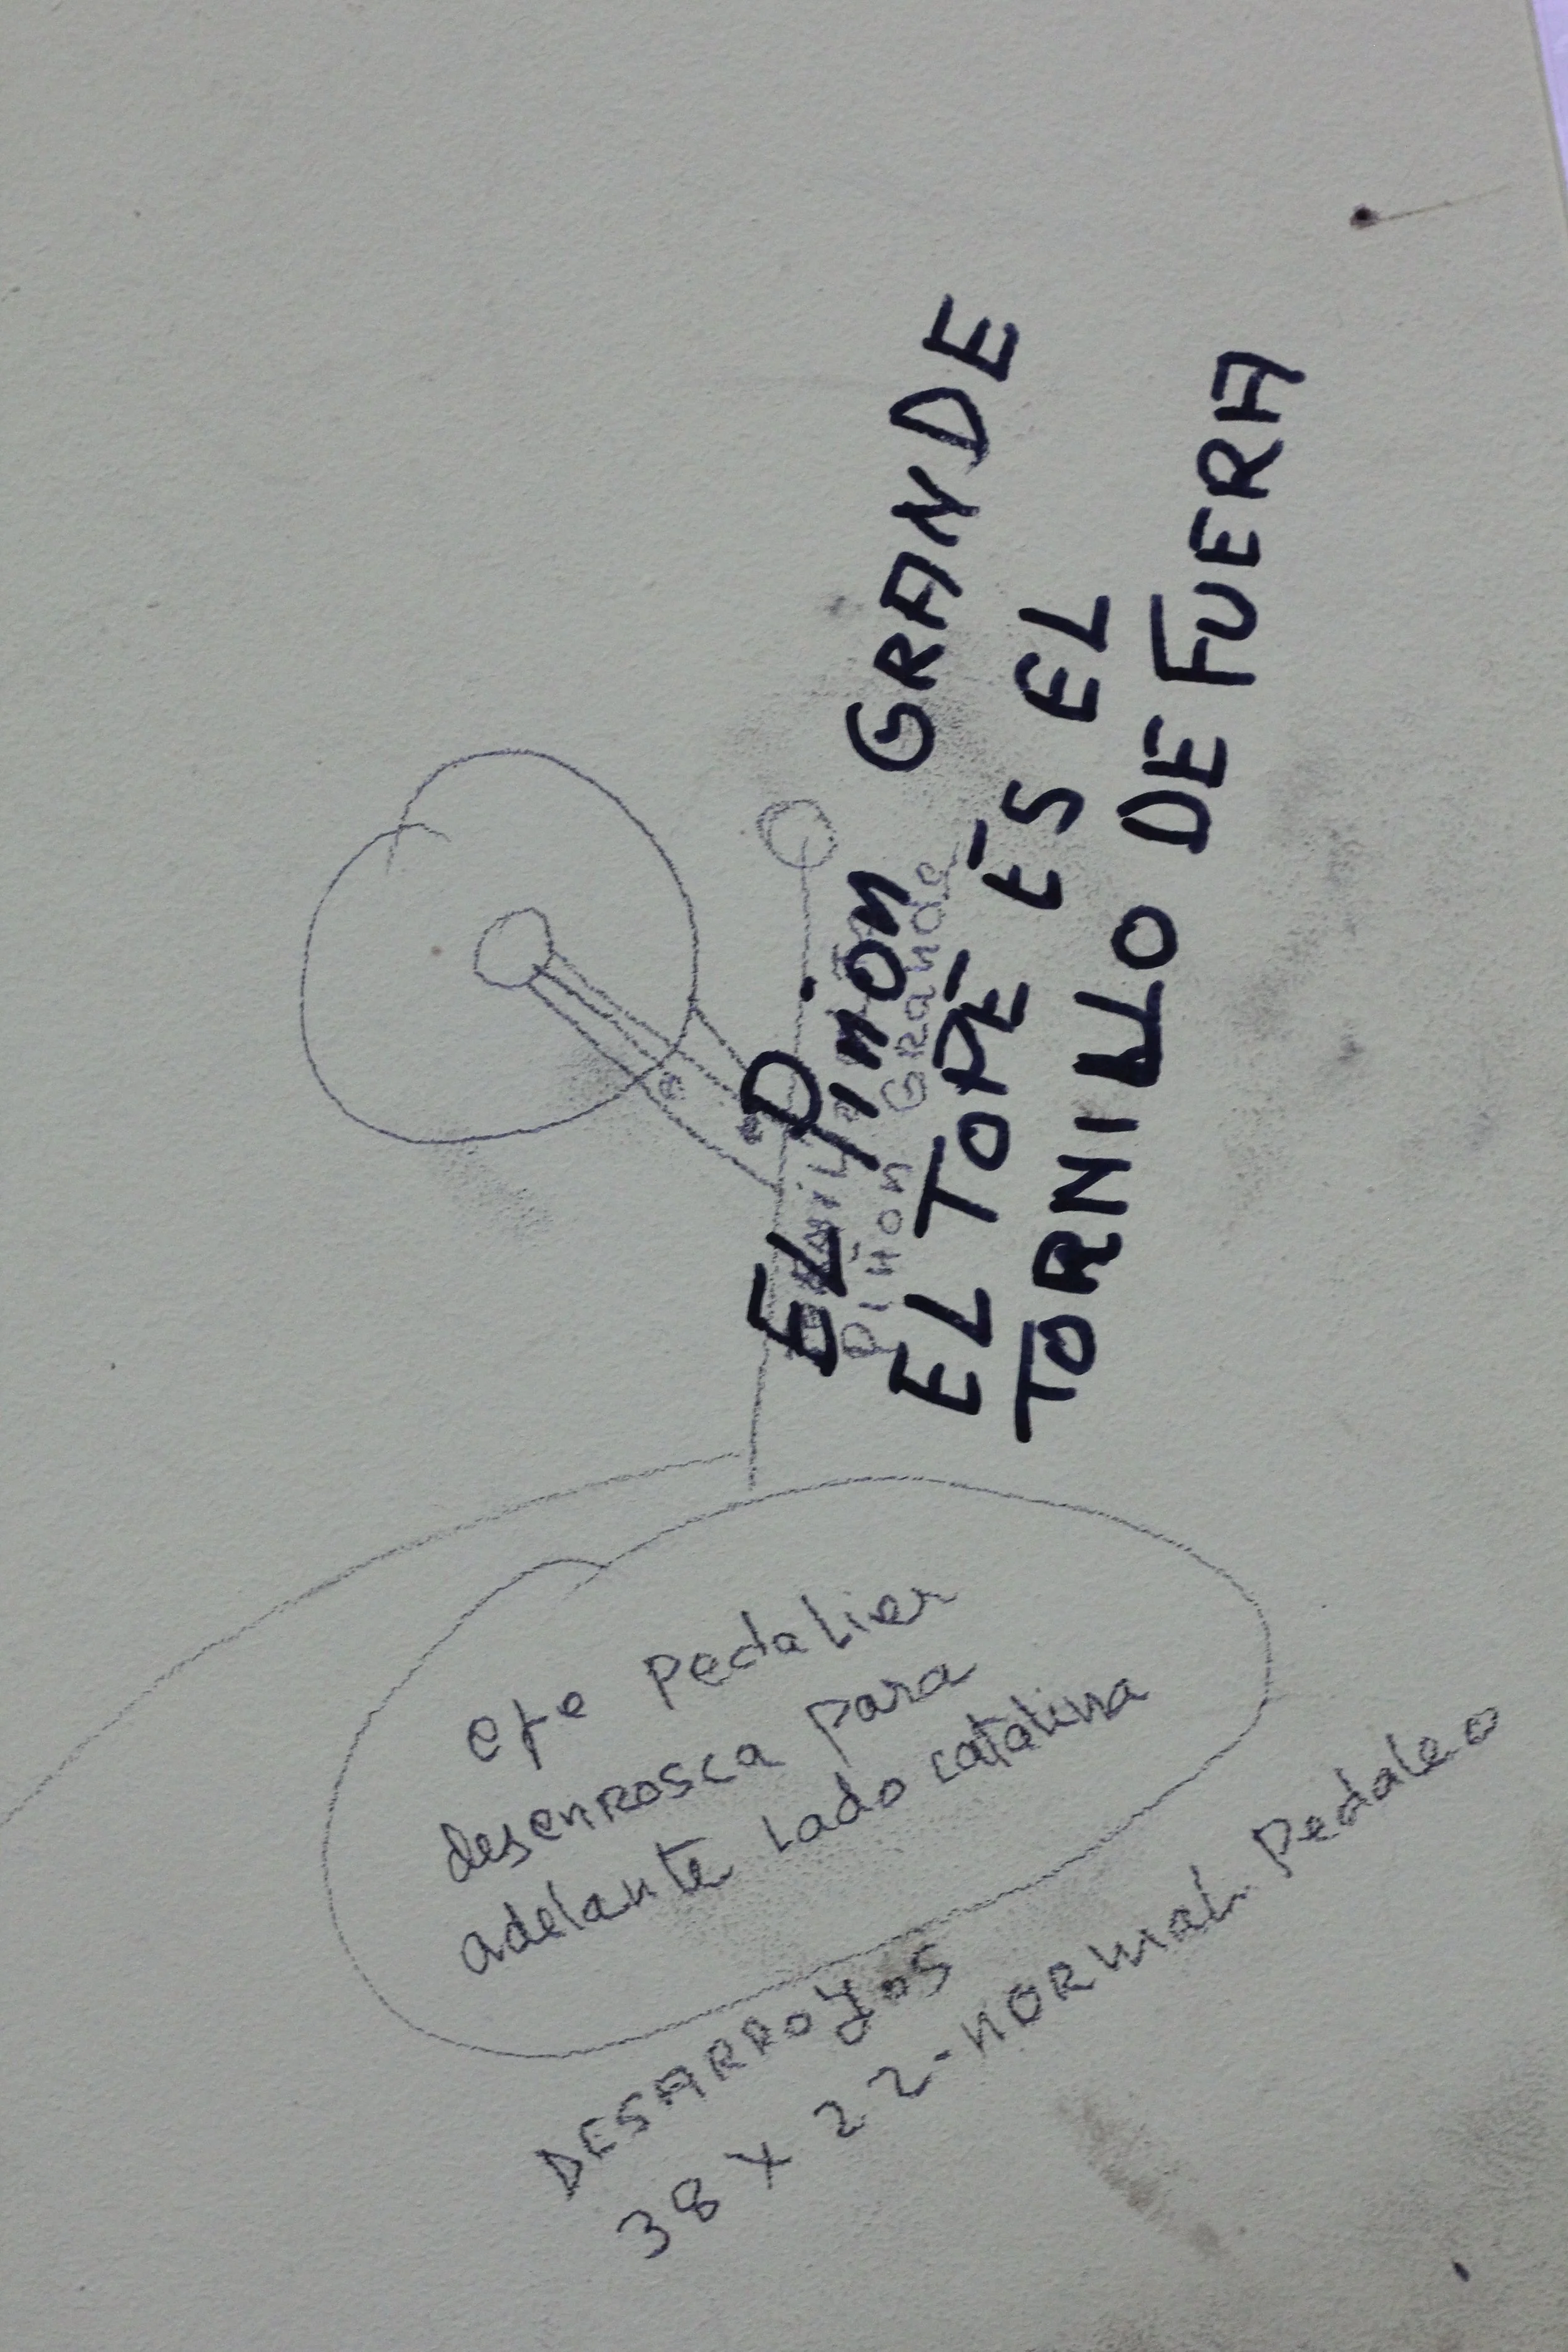 EL PIÑON GRANDE
EL TOPE ES EL
TORNILLO DE FUERA
PIÑON GRANDE
eje Pedalier
desenrosca para
adelante lado catalina
DESARROYOS
38 x 22-NORMAL Pedaleo